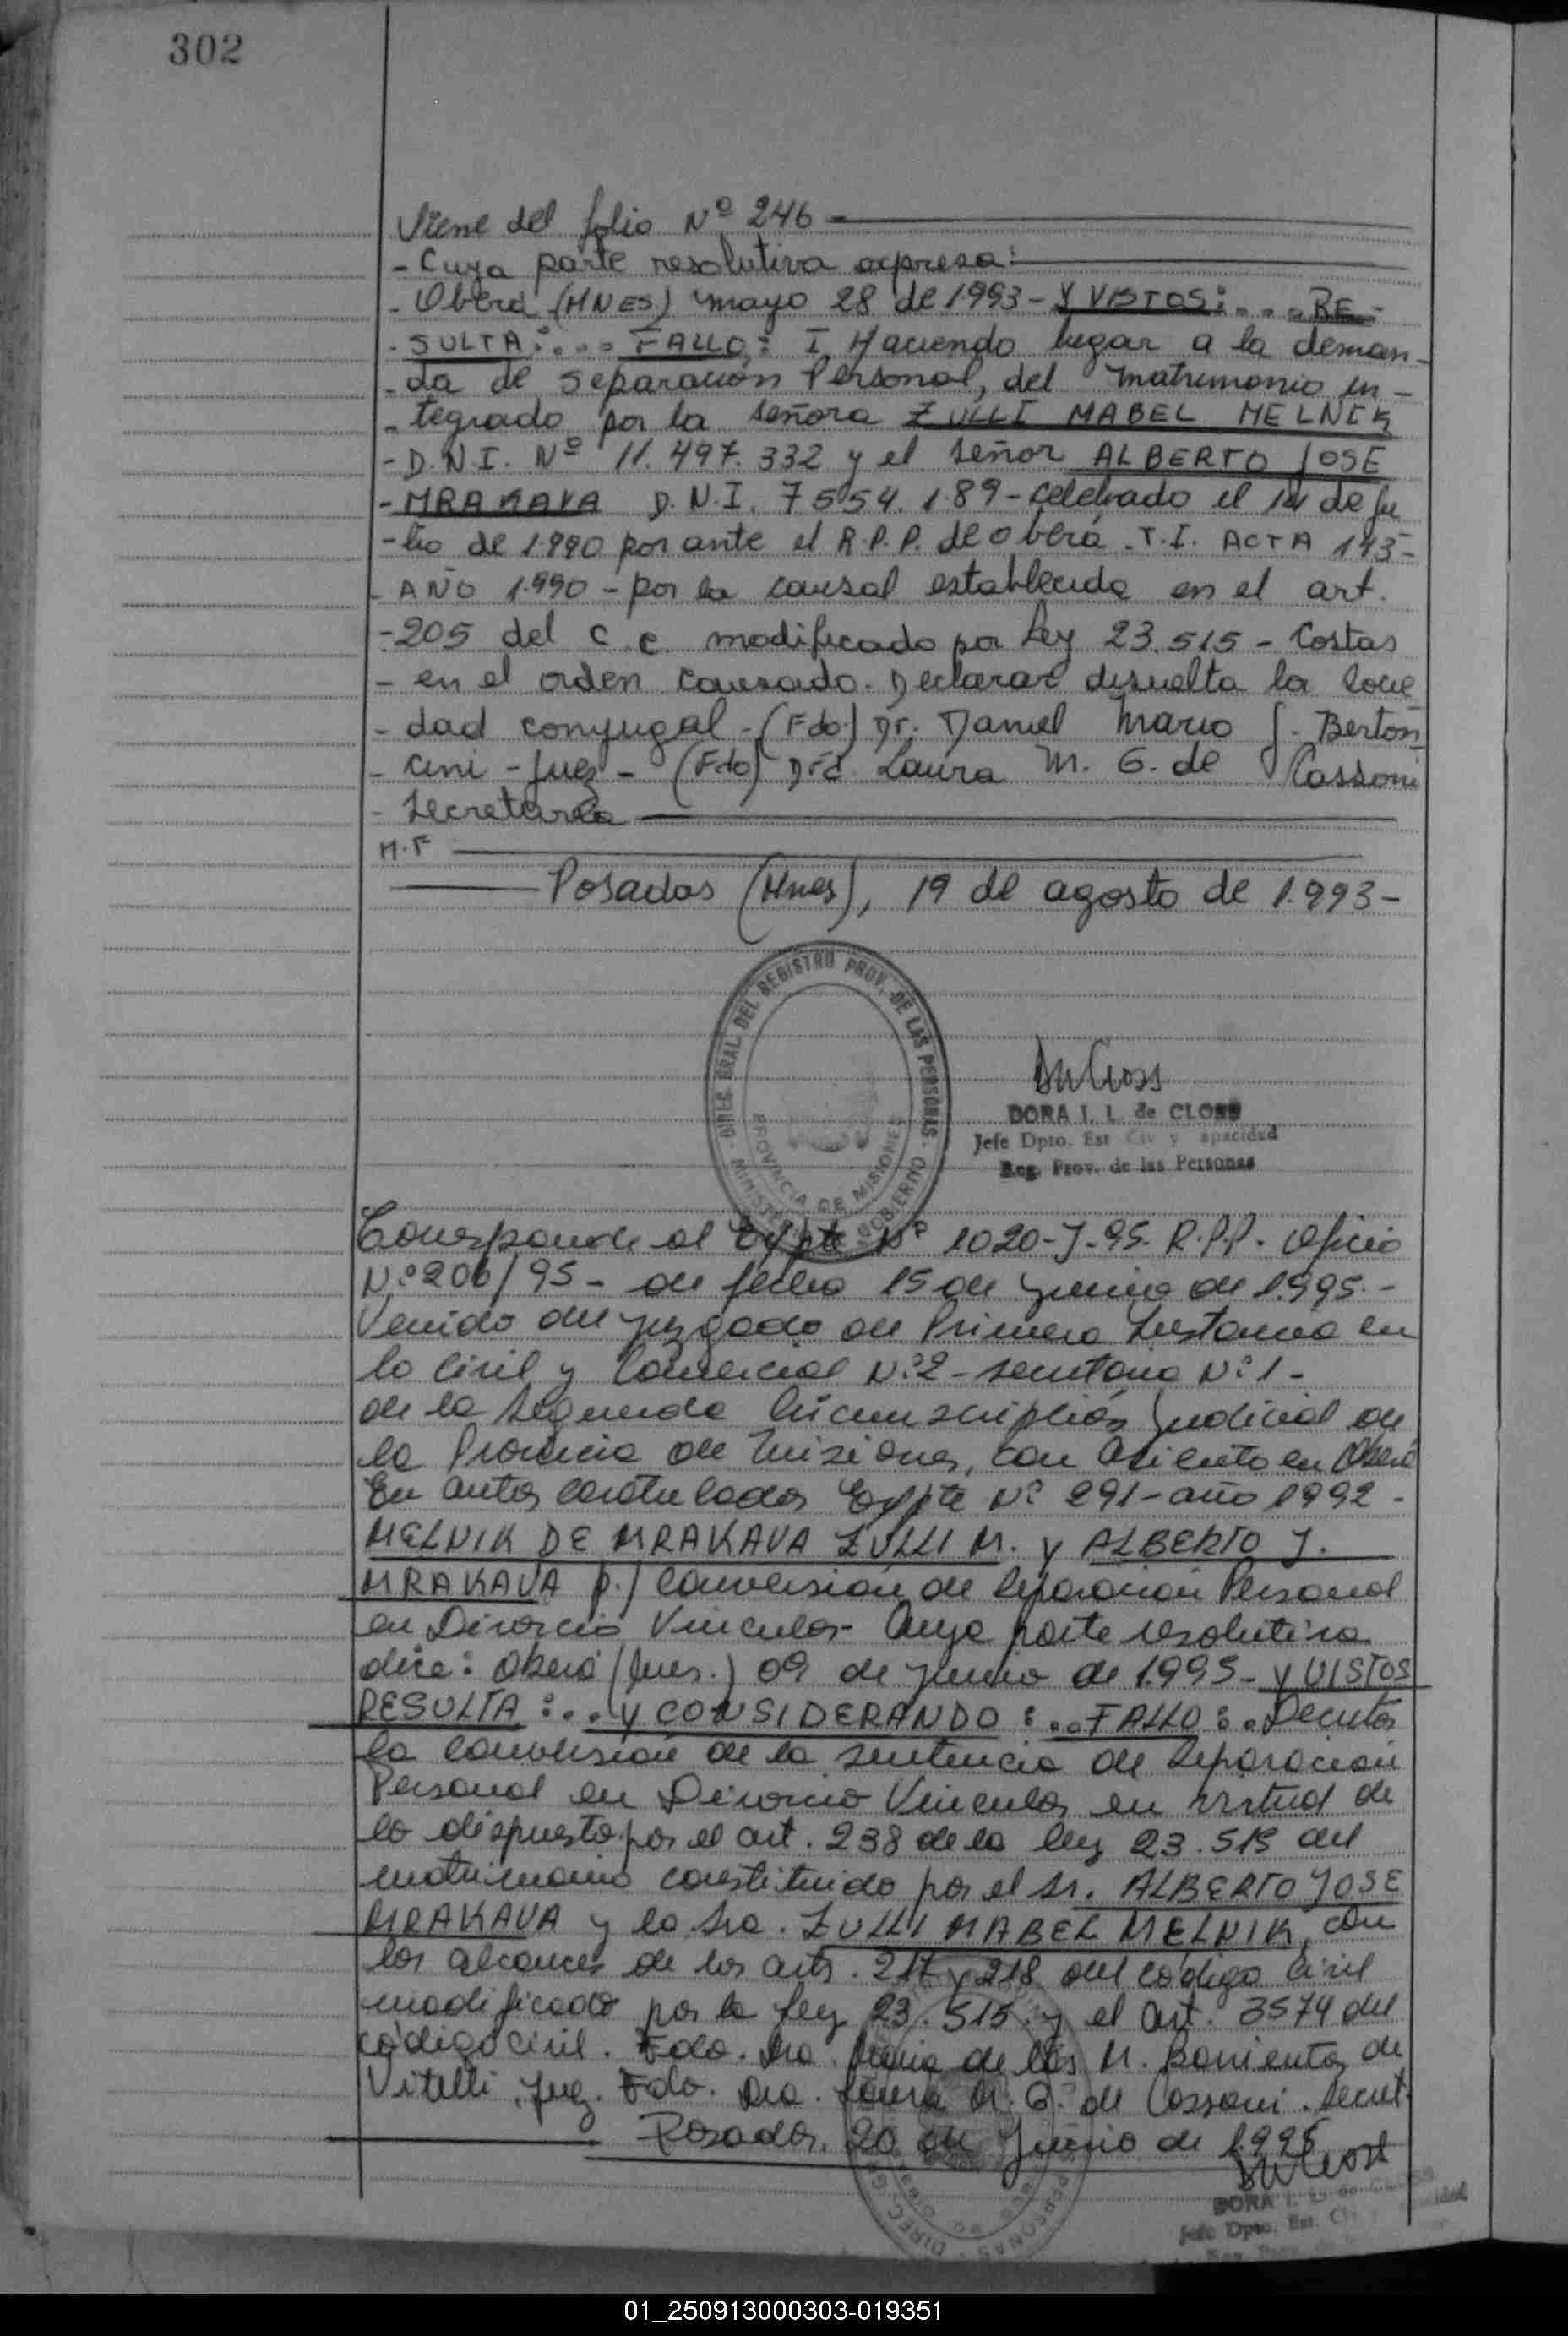 302
Viene del folio Nº 246
- Cuya parte resolutiva expresa:
- Oberá (MNES) mayo 28 de 1.993 - Y VISTOS: ... RE-
- SULTA: ... FALLO: I Haciendo lugar a la deman-
- da de Separación Personal, del matrimonio in-
- tegrado por la señora ZULLI MABEL MELNIK
- D.N.I. Nº 11.497.332 y el señor ALBERTO JOSE
- MRAKAVA D.N.I. 7554.189 - celebrado el 14 de ju
- lio de 1990 por ante el R.P.P. de Oberá. T.I. ACTA 143-
- AÑO 1.990 - por la causal establecida en el art.
- 205 del C.C. modificado por Ley 23.515 - Costas
- en el orden causado. Declarar disuelta la socie
- dad conyugal - (Fdo) Dr. Daniel Mario J. Berton
- cini - Juez - (Fdo) Dra. Laura M. G. de Cassoni
- Secretaria
M.F
Posadas (Mnes), 19 de agosto de 1.993-
DIREC. GRAL. DEL REGISTRO PROV. DE LAS PERSONAS
PROVINCIA DE MISIONES
DORA I. L. de CLOSS
Jefe Dpto. Est Civ y apacidad
Reg. Prov. de las Personas
Corresponde al Expte Nº 1020-J-95. R.P.P. Oficio
Nº 206/95 - de fecha 15 de Junio de 1.995.-
Venido del Juzgado de Primera Instancia en
lo Civil y Comercial Nº 2 - secretaria Nº 1 -
de la Segunda Circunscripción Judicial de
la Provincia de Misiones, con asiento en Oberá
En autos caratulados Expte Nº 291 - año 1992 -
MELNIK DE MRAKAVA ZULLI M. y ALBERTO J.
MRAKAVA p./ Conversión de Separación Personal
en Divorcio Vincular - Cuya parte resolutiva
dice: Oberá (Mnes.) 09 de Junio de 1.995 - y VISTOS
RESULTA: ... y CONSIDERANDO: ... FALLO: . Decretar
la conversión de la sentencia de Separación
Personal en Divorcio Vincular en virtud de
lo dispuesto por el art. 238 de la ley 23.515 del
matrimonio constituido por el Sr. ALBERTO JOSE
MRAKAVA y la Sra. ZULLI MABEL MELNIK, con
los alcances de los arts. 217 y 218 del código Civil
modificado por la Ley 23.515 y el Art. 3574 del
código civil. Fdo. Dra. María de las M. Barrientos de
Vitelli. Juez. Fdo. Dra. Laura M. G. de Cassoni. Secret.
Posadas, 20 de Junio de 1.995
DORA I. L. de
Jefe Dpto. Est. C
01_250913000303-019351